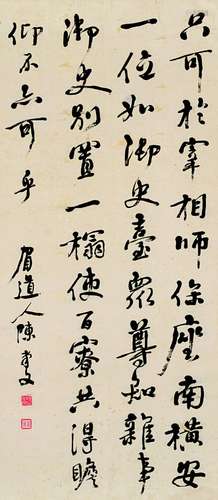 只可於宰相師保座南橫安
一位如御史臺眾尊知雜事
御史別置一榻使百寮共得瞻
仰不亦可乎
眉道人陳